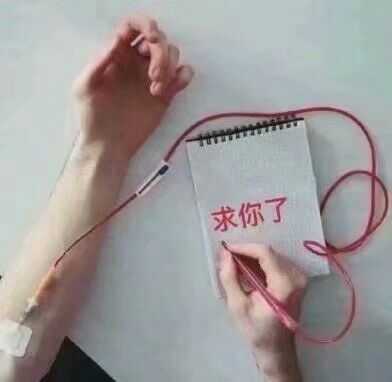 求你了